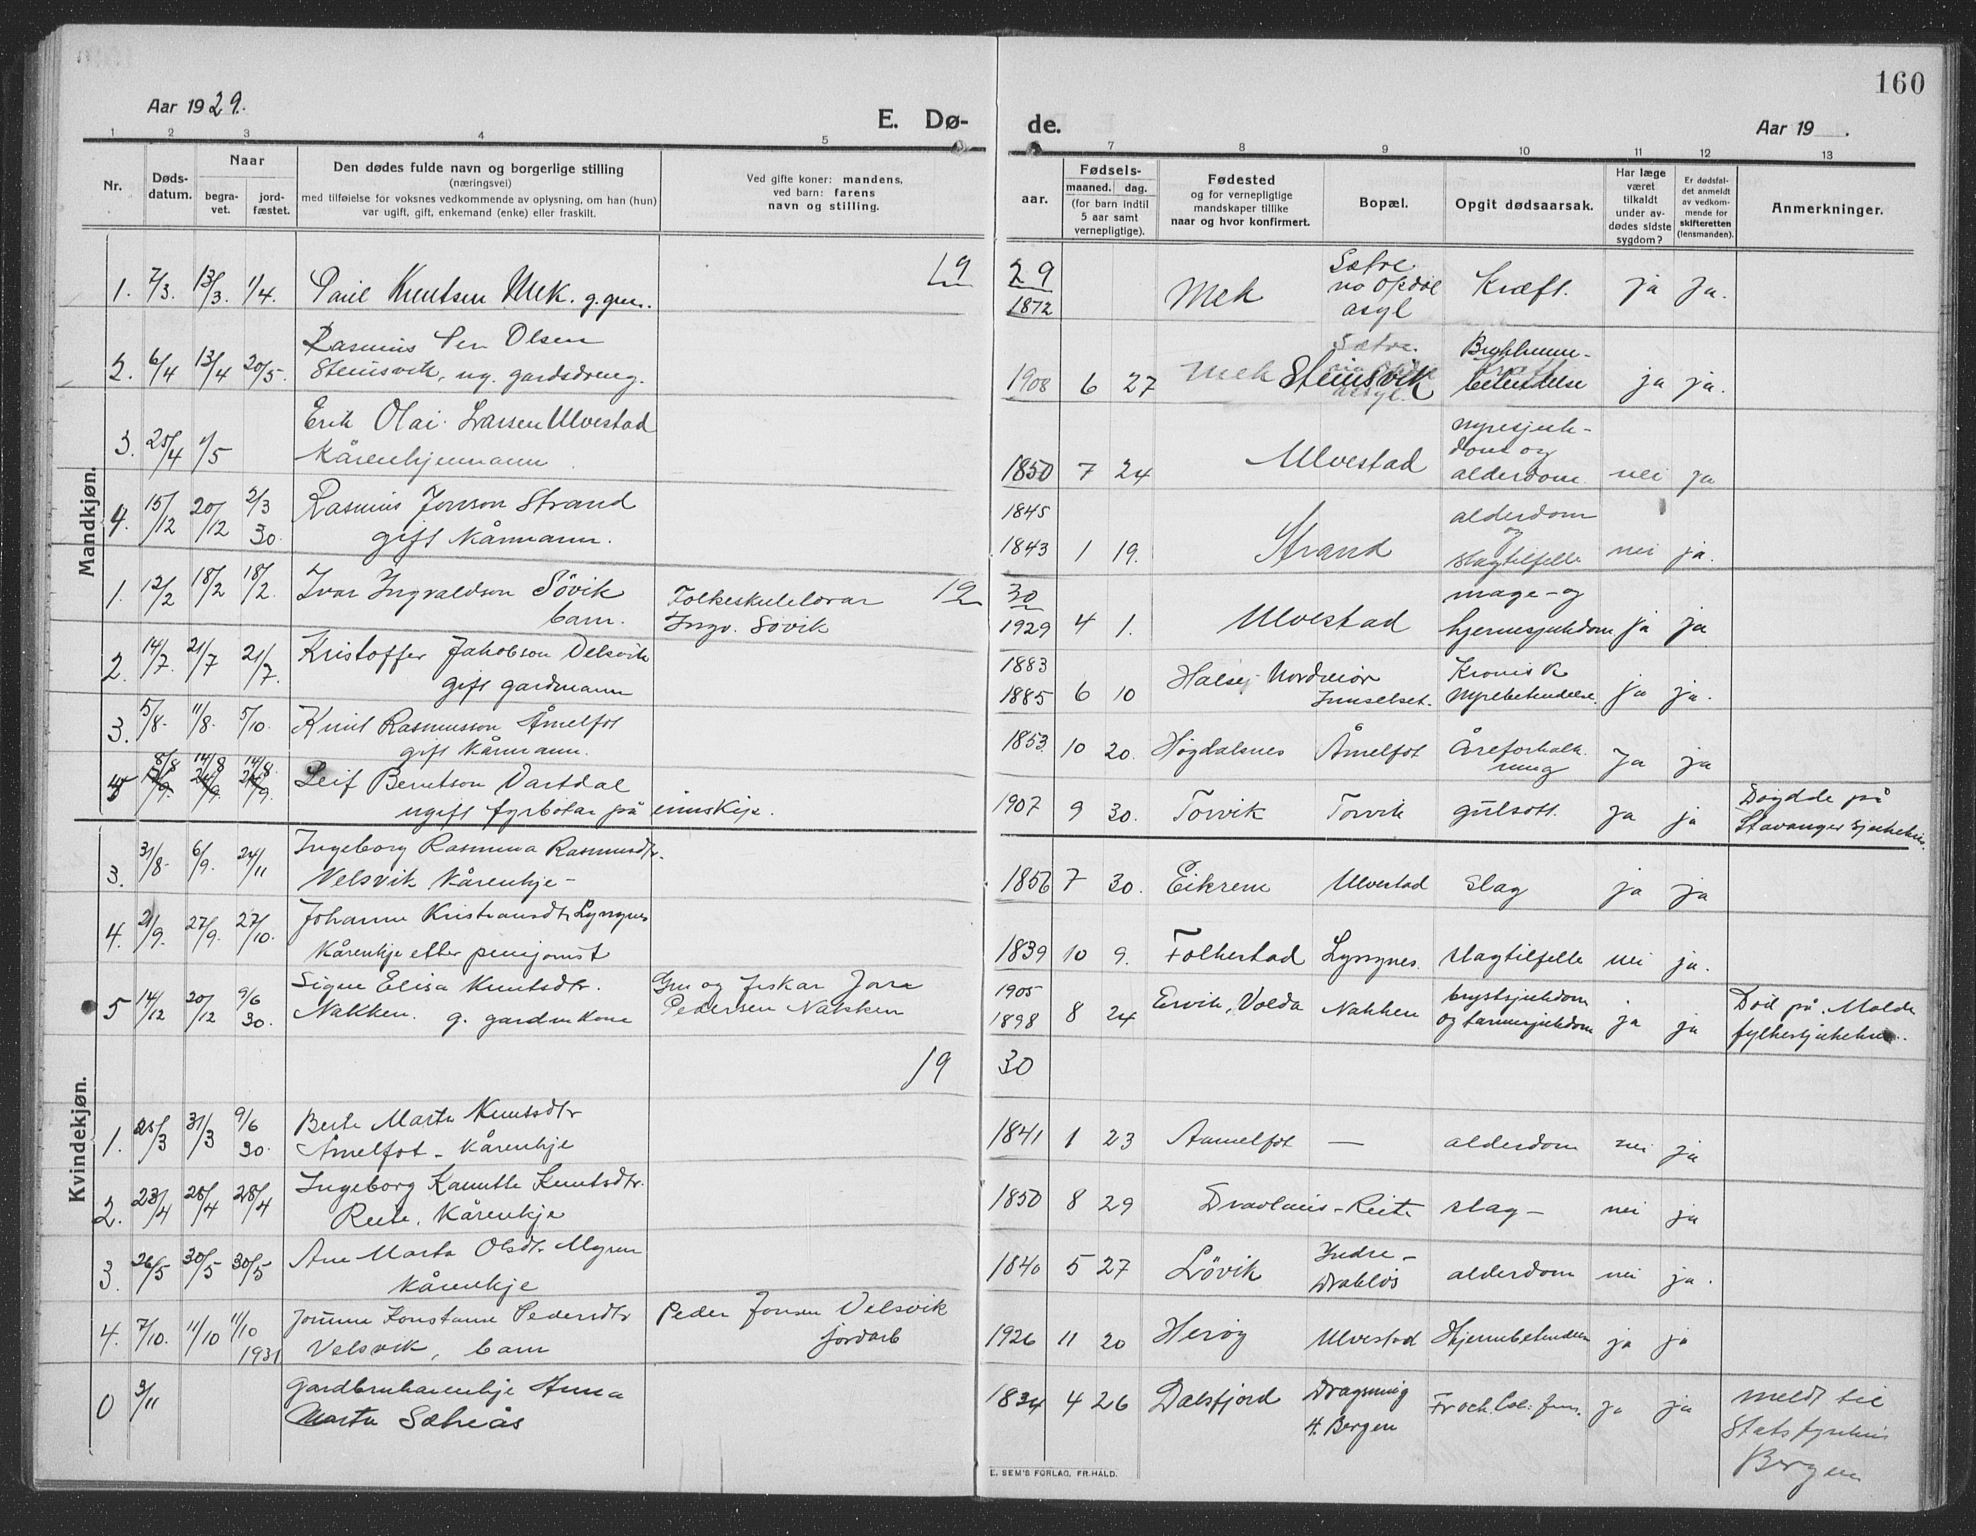 160
Aar 1929.
E. Dø-
de.
Aar 19 .
1 2 3 4 5 7 8 9 10 11 12 13
Nr.
Døds-
datum.
Naar
begra-
vet.
jord-
fæstet.
Den dødes fulde navn og borgerlige stilling
(næringsvei)
med tilføielse for voksnes vedkommende av oplysning, om han (hun)
var ugift, gift, enkemand (enke) eller fraskilt.
Ved gifte koner: mandens,
ved barn: farens
navn og stilling.
aar.
Fødsels-
maaned. dag.
(for barn indtil
5 aar samt
vernepligtige).
Fødested
og for vernepligtige
mandskaper tillike
naar og hvor konfirmert.
Bopæl.
Opgit dødsaarsak.
Har læge
været
tilkaldt
under av-
dødes sidste
sygdom?
Er dødsfal-
det anmeldt
av vedkom-
mende for
skifteretten
(lensmanden).
Anmerkninger.
Mandkjøn.
19 29
1. 7/3. 13/3. 1/4. Paul Knutsen Mek. g.
1872 Mek Sætre
asyl Kræft. ja ja.
2. 6/4 13/4 20/5. Rasmus Per Olsen
Steinsvik, ug. gardsdreng.
1908 6 27 Steinsvik ja ja.
3. 25/4 1/5 Erik Olai Larsen Ulvestad
Kårenkjemann
1850 7 24 Ulvestad nyresjuk-
dom og
alderdom nei ja
4. 15/12 20/12 2/3 30. Rasmus Jonson Strand
gift Kårmann.
1845
1843 1 19. Strand alderdom
og
slagtilfelle nei ja.
19 30
1. 12/2 18/2 18/2. Ivar Ingvaldson Søvik
barn. Folkeskulelærar
Ingv. Søvik
1929 4 1. Ulvestad mage- og
hjernesjukdom ja ja
2. 14/7. 21/7 21/7. Kristoffer Jakobson Velsvik
gift gardmann
1883
1885 6 10 Halse, Nordmøre Innselset. Kronisk
Nyrebetendelse. ja ja.
3. 5/8. 11/8. 5/10. Knut Rasmusson Åmelfot
gift Kårmann.
1853 10 20. Høgdalsnes Åmelfot Åreforkalk
ning ja ja
8/8 14/8 14/8. Leif Berntson Vartdal
ugift fyrbøtar på inuskip.
1907 9 30. Torvik Torvik gulsott. ja ja Døydde på
Stavanger sjukehus.
Kvindekjøn.
3. 31/8. 6/9. 24/11 Ingeborg Rasmina Rasmusdtr.
Velsvik Kårenkje -
1856 7 30. Eikrem Ulvestad slag ja ja
4. 21/9. 27/9. 27/10. Johanne Kristiansdtr Lyngnes
Kårenkje etter pensjonist
1839 10 9. Folkestad Lyngnes. slagtilfelle nei ja.
5 14/12 20/12 9/6 30. Signe Elisa Knutsdtr.
Nakken. g. gardm kone Grm og fiskar Jora
Pedersen Nakken
1905
1898 8 24 Ervik, Volda Nakken brystsjukdom
og tarmsjukdom ja ja Död på Molde
fylkessjukehus.
19 30
1. 25/3 31/3 9/6 30. Berte Marte Knutsdtr
Åmelfot - Kårenkje
1841 1 23 Aamelfot — alderdom nei ja
2. 23/4 28/4 28/4 Ingeborg Kamilla Knutsdtr.
Reite, Kårenkje
1850 8 29 Dravlaus - Reite slag - nei ja
3. 26/5 30/5 30/5 Ane Marta Olsdtr Myren
Kårenkje
1840 5 27 Løvik Indre -
Drabløs alderdom nei ja.
4. 7/10. 11/10 11/10 1931 Jorunn Konstanse Pedersdtr
Velsvik, barn Peder Jonsen Velsvik
jordarb
1926 11 20 Herøy Ulvestad Hjernebetendelse ja ja
0 3/11 Gardbrukarenkje Anna
Marta Sætreås
1834 4 26 Dalsfjord Dragsmug
4. Bergen ja ja meldt til
Bergen
E. SEM'S FORLAG, FR.HALD.